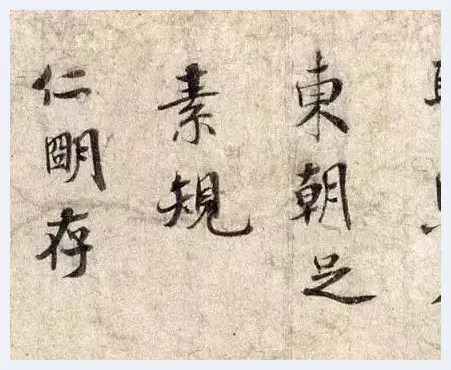 東朝足
素規
仁明存